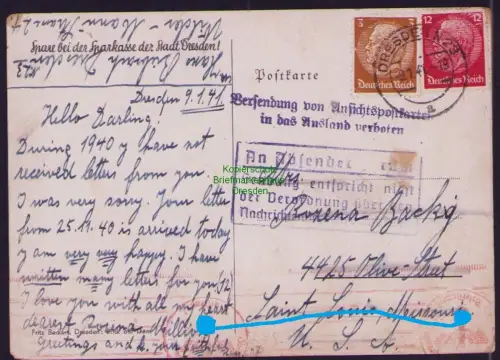 Spare bei der Sparkasse der Stadt Dresden!
Postkarte
3
Deutsches Reich
12
Deutsches Reich
DRESDEN
Versendung von Ansichtspostkarten
in das Ausland verboten
An Absender
entspricht nicht
der Verordnung über den
Nachrichten
Kopierschutz
Briefmarken
Dresden
Dresden 9.1.41.
Hello Darling!
During 1940 y have not
received letters from you.
I was very sorry. Your letter
from 25.11.40 is arrived today
y am very very happy. I have
written many letter for you
I love you with all my heart
dearest
Greetings and
Mrs.
Ruzena Backg
4425 Olive Street
Saint Louis, Missouri
U. S. A.